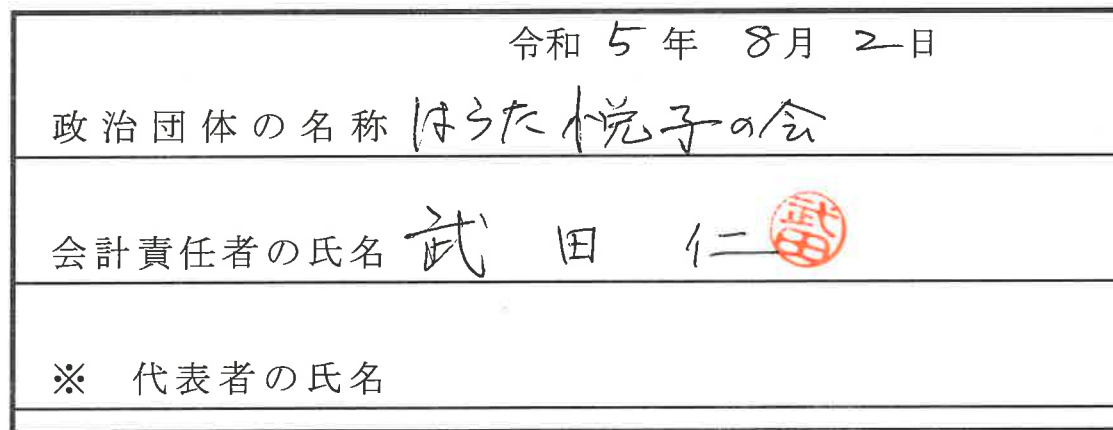 令和 5 年 8月 2日
政治団体の名称 はらた悦子の会
会計責任者の氏名 武田 仁 武田
※ 代表者の氏名